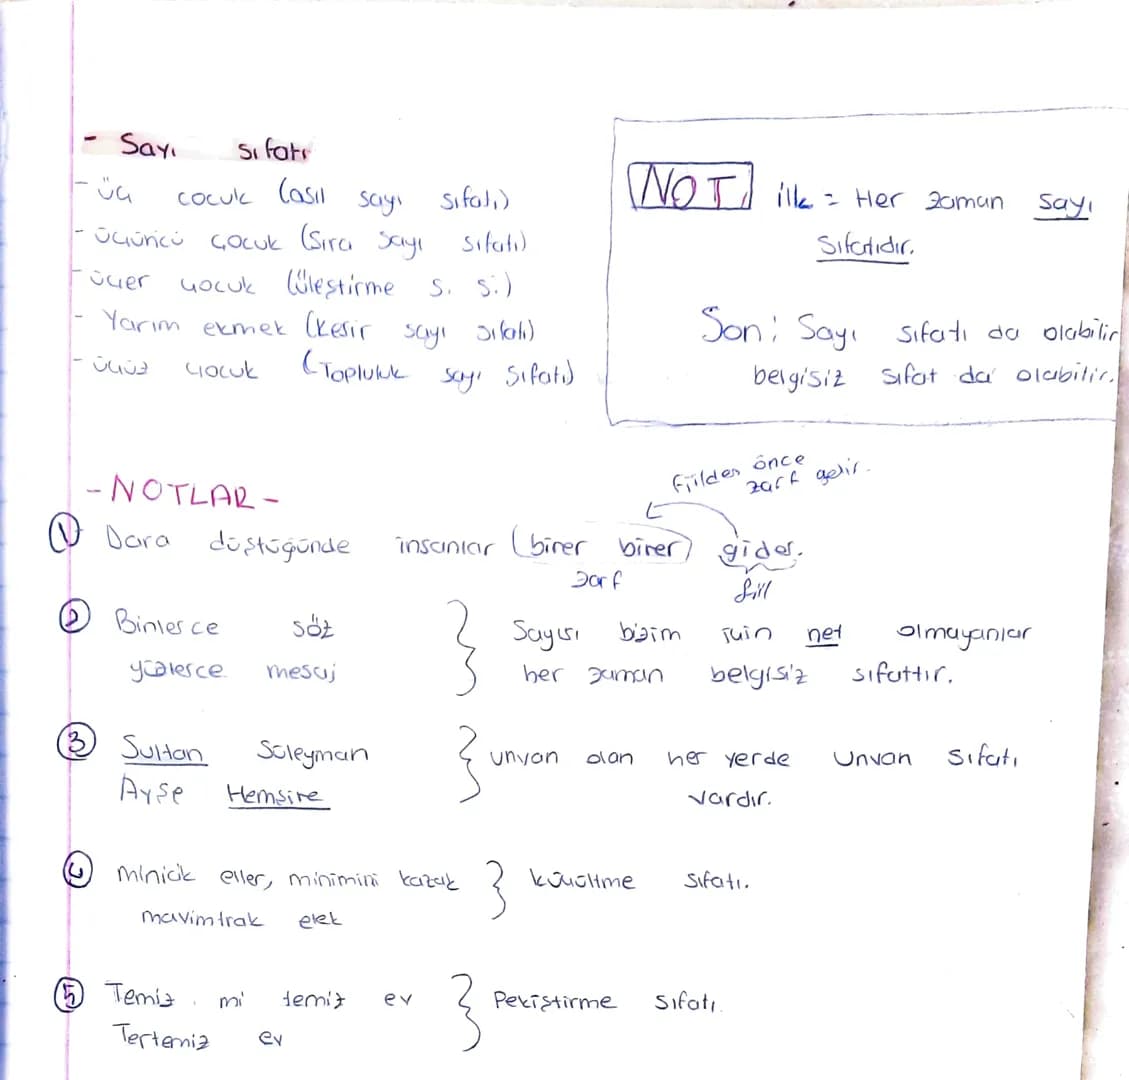 - Sayı sıfatı
- üç cocuk (asıl sayı sıfatı)
- üçüncü çocuk (Sıra sayı sıfatı)
- üçer çocuk (üleştirme s. s.)
- Yarım ekmek (kesir sayı sıfatı)
- üçüz çocuk (Topluluk sayı sıfatı)
NOT ilk = Her zaman sayı
sıfatıdır.
Son; Sayı sıfatı da olabilir
belgisiz sıfat da olabilir.
- NOTLAR -
Fiilden önce
zarf gelir.
1 Dara düştüğünde insanlar (birer birer) gider.
zarf fiil
2 Binlerce söz } Sayısı bizim için net olmayanlar
yüzlerce mesaj her zaman belgisiz sıfattır.
3 Sultan Süleyman } unvan olan her yerde Unvan sıfatı
Ayşe Hemşire vardır.
4 minicik eller, minimini kazak } küçültme sıfatı.
mavimtrak etek
5 Temiz mi temiz ev } Pekiştirme sıfatı
Tertemiz ev